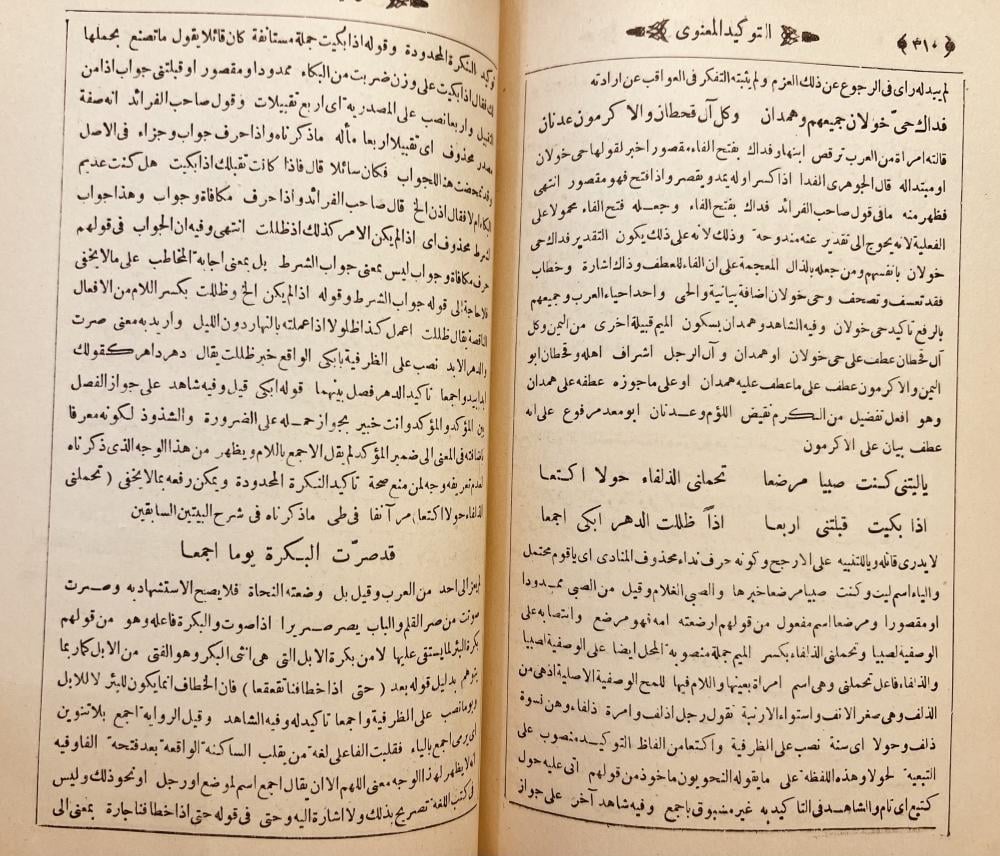 ﴿٣١٠﴾
التوكيد المعنوى
لم يبد له راى فى الرجوع عن ذلك العزم ولم يثبته التفكر فى العواقب عن ارادته
فداك حى خولان جميعهم وهمدان وكل آل قحطان والاكرمون عدنان
قالته امرأة من العرب ترقص ابنها وفداك بفتح الفاء مقصور اخبر لقولها حى خولان
او مبتدا له قال الجوهرى الفدا اذا كسر اوله يمد ويقصر واذا فتح فهو مقصور انتهى
فظهر منه مافى قول صاحب الفرائد فداك بفتح الفاء وجعله فتح الفاء محمولا على
الفعلية لانه يحوج الى تقدير عنه مندوحة وذلك لانه على ذلك يكون التقدير فداك حى
خولان بانفسهم ومن جعله بالذال المعجمة على ان الفاء للعطف وذاك اشارة وخطاب
فقد تعسف وتصحف وحى خولان اضافة بيانية والحى واحد احياء العرب وجميعهم
بالرفع تاكيد حى خولان وفيه الشاهد وهمدان بسكون الميم قبيلة اخرى من اليمن وكل
آل قحطان عطف على حى خولان او همدان وآل الرجل اشراف اهله وقحطان ابو
اليمن والاكرمون عطف على ما عطف عليه همدان او على ما جوزه عطفه على همدان
وهو افعل تفضيل من الكرم نقيض اللؤم وعدنان ابو معد مرفوع على انه
عطف بيان على الاكرمون
ياليتنى كنت صبيا مرضعا تحملنى الذلفاء حولا اكتعا
اذا بكيت قبلتنى اربعا اذاً ظللت الدهر ابكى اجمعا
لايدرى قائله ويا للتنبيه على الارجح وكونه حرف نداء محذوف المنادى اى ياقوم محتمل
والياء اسم ليت وكنت صبيا مرضعا خبرها والصبى الغلام وقيل من الصبى ممدودا
او مقصورا ومرضعا اسم مفعول من قولهم ارضعته امه فهو مرضع وانتصابه على
الوصفية لصبيا وتحملنى الذلفاء بكسر الميم جملة منصوبة المحل ايضا على الوصفية لصبيا
والذلفاء فاعل تحملنى وهى اسم امراة بعينها واللام فيها للمح الوصفية الاصلية اذهى من
الذلف وهى صغر الانف واستواء الارنبة تقول رجل اذلف وامرة ذلفاء وهن نسوة
ذلف وحولا اى سنة نصب على الظرفية واكتعا من الفاظ التوكيد منصوب على
التبعية لحولا وهذه اللفظة على مايقوله النحويون ماخوذ من قولهم اتى عليه حول
كتيع اى تام والشاهد فى التاكيد به غير مسبوق باجمع وفيه شاهد آخر على جواز
توكيد النكرة المحدودة وقوله اذا بكيت جملة مستانفة كان قائلا يقول ما تصنع بحملها
لك فقال اذا بكيت على وزن ضربت من البكاء ممدود او مقصور او قبلتنى جواب اذا من
التقبيل واربعا نصب على المصدرية اى اربع تقبيلات وقول صاحب الفرائد انه صفة
مصدر محذوف اى تقبيلا اربعا مأله ماذكرناه واذا حرف جواب وجزاء فى الاصل
وقد تمحضت هنا للجواب فكان سائلا قال فاذا كانت تقبلك اذا بكيت هل كنت عديم
البكاء ام لا فقال اذن الخ قال صاحب الفرائد واذا حرف مكافاة وجواب وهذا جواب
لشرط محذوف اى اذا لم يكن الامر كذلك اذ ظللت انتهى وفيه ان الجواب فى قولهم
حرف مكافاة وجواب ليس بمعنى جواب الشرط بل بمعنى اجابة المخاطب على مالايخفى
فلا حاجة الى قوله جواب الشرط وقوله اذا لم يكن الخ وظللت بكسر اللام من الافعال
الناقصة يقال ظللت اعمل كذا ظلولا اذا عملته بالنهار دون الليل واريد به معنى صرت
والدهر الابد نصب على الظرفية بابكى الواقع خبر ظللت يقال دهر داهر كقولك
ابد ابيد واجمعا تاكيد الدهر فصل بينهما قوله ابكى قيل وفيه شاهد على جواز الفصل
بين المؤكد والمؤكد وانت خبير بجواز حمله على الضرورة والشذوذ لكونه معرفا
باضافته فى المعنى الى ضمير المؤكد لم يقل الاجمع باللام ويظهر من هذا الوجه الذى ذكرناه
لعدم تعريفه وجه لمن منع صحة تاكيد النكرة المحدودة ويمكن رفعه بمالا يخفى (تحملنى
الذلفاء حولا اكتعا) مر آنفا فى طى ماذكرناه فى شرح البيتين السابقين
قد صرّت البكرة يوما اجمعا
لم يعز الى احد من العرب وقيل بل وضعته النحاة فلا يصح الاستشهاد به وصرت
صوتت من صر القلم والباب يصر صريرا اذا صوت والبكرة فاعله وهو من قولهم
بكرة البئر لما يستقى عليها لا من بكرة الابل التى هى انثى البكر وهو الفتى من الابل كما ربما
يتوهم بدليل قوله بعد (حتى اذا خطافنا تقعقعا) فان الخطاف انما يكون للبئر لا للابل
ويوما نصب على الظرفية واجمعا تاكيد له وفيه الشاهد وقيل الرواية اجمع بلا تنوين
اى يرمى اجمع بالياء فقلبت الفا على لغة من يقلب الساكنة الواقعة بعد فتحة الفا وفيه
انه لا يظهر لهذا الوجه معنى اللهم الا ان يقال اجمع اسم لموضع او رجل او نحو ذلك وليس
فى كتب اللغة تصريح بذلك ولا اشارة اليه وحتى فى قوله حتى اذا خطافنا جارة بمعنى الى